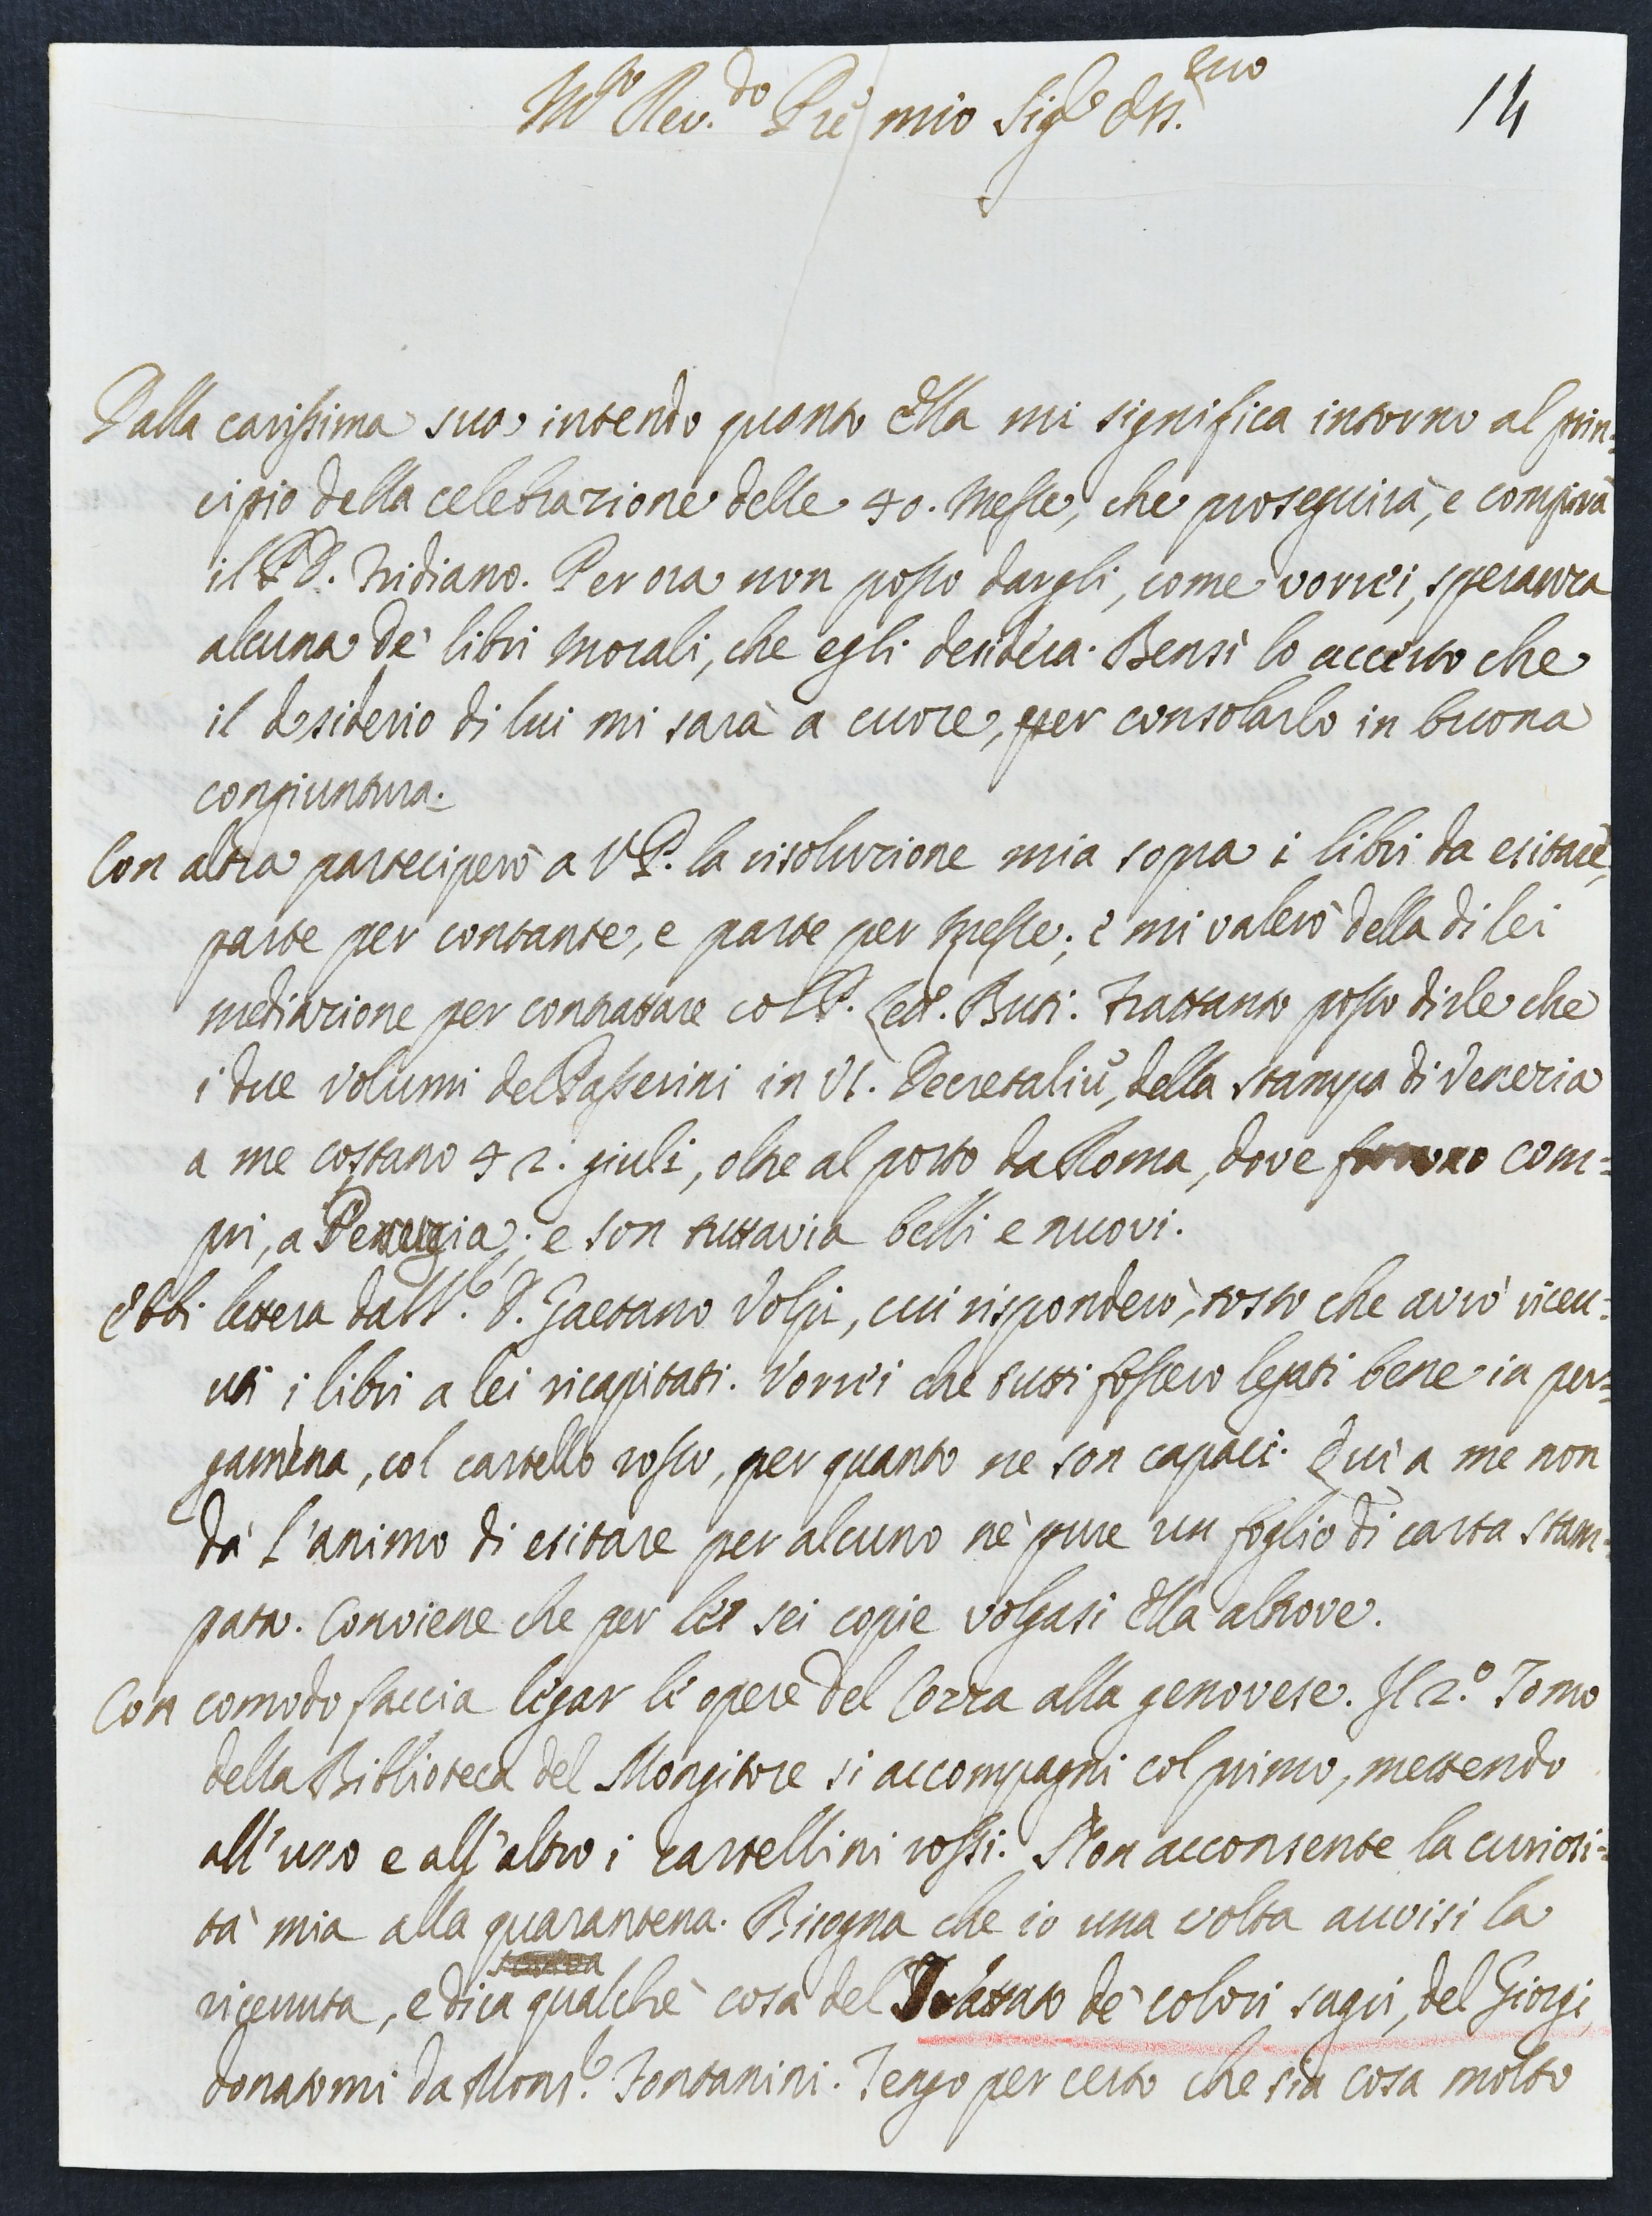 M.to Rev.do Pre mio Sig.r Oss.mo
14
Dalla carissima sua intendo quanto Ella mi significa intorno al prin-
cipio della celebrazione delle 40. Messe, che proseguirà, e compirà
il P. D. Fridiano. Per ora non posso dargli, come vorrei, speranza
alcuna de' libri morali, che egli desidera. Bensì lo accerto che
il desiderio di lui mi sarà a cuore, per consolarlo in buona
congiuntura.
Con altra parteciperò a V. P. la risoluzione mia sopra i libri da esitare,
parte per contante, e parte per Messe; e mi valerò della di lei
mediazione per contrattare col P. Buti. Frattanto posso dirle che
i due volumi del Passerini in VI. Decretaliū, della stampa di Venezia
a me costano 42. giuli, oltre al porto da Roma, dove furono com=
pri, a Perugia; e son tuttavia belli e nuovi.
Ebbi lettera dal S.r D. Gaetano Volpi, cui risponderò, tosto che avrò riceu=
uti i libri a lei ricapitati. Vorrei che tutti fossero legati bene in per=
gamena, col cartello rosso, per quanto ne son capaci. Qui a me non
dà l'animo di esitare per alcuno nè pure un foglio di carta stam=
pata. Conviene che per le sei copie volgasi Ella altrove.
Con comodo faccia legar le opere del Cozza alla genovese. Il 2.o Tomo
della Biblioteca del Mongitore si accompagni col primo, mettendo
all'uno e all'altro i cartellini rossi. Non acconsente la curiosi=
tà mia alla quarantena. Bisogna che io una volta avvisi la
ricevuta, e dica qualche cosa del Trattato de' colori sagri, del Giorgi,
donatomi da Mons.r Fontanini. Tengo per certo che sia cosa molto